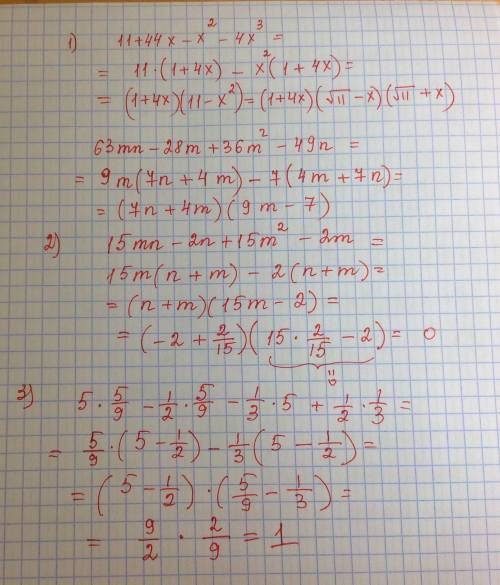 1) 11+44x - x² - 4x³ =
= 11·(1+4x) - x²(1+4x) =
= (1+4x)(11-x²) = (1+4x)(√11 - x)(√11 + x)
63mn - 28m + 36m² - 49n =
= 9m(7n+4m) - 7(4m+7n) =
= (7n+4m)(9m-7)
2) 15mn - 2n + 15m² - 2m =
15m(n+m) - 2(n+m) =
= (n+m)(15m-2) =
= (-2 + 2/15)(15·2/15 - 2) = 0
=0
3) 5·5/9 - 1/2·5/9 - 1/3·5 + 1/2·1/3 =
= 5/9·(5 - 1/2) - 1/3(5 - 1/2) =
= (5 - 1/2)·(5/9 - 1/3) =
= 9/2 · 2/9 = 1